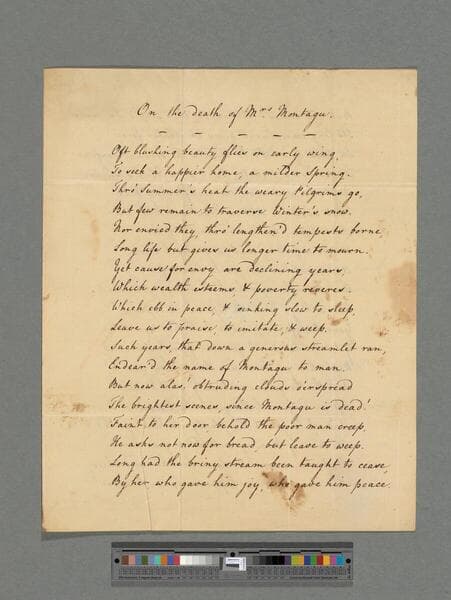 On the death of Mrs Montagu.
Oft blushing beauty flies on early wing,
To seek a happier home, a milder spring.
Thro' summer's heat the weary Pilgrims go,
But few remain to traverse Winter's snow.
Nor envied they, thro' lengthen'd tempests borne
Long life but gives us longer time to mourn.
Yet cause for envy are declining years,
Which wealth esteems & poverty reveres.
Which ebb in peace, & sinking slow to sleep,
Leave us to praise, to imitate, & weep.
Such years, that down a generous streamlet ran,
Endear'd the name of Montagu to man.
But now alas! obtruding clouds o'erspread
The brightest scenes, since Montagu is dead!
Faint, to her door behold the poor man creep,
He asks not now for bread, but leave to weep.
Long had the briny stream been taught to cease,
By her, who gave him joy, who gave him peace.